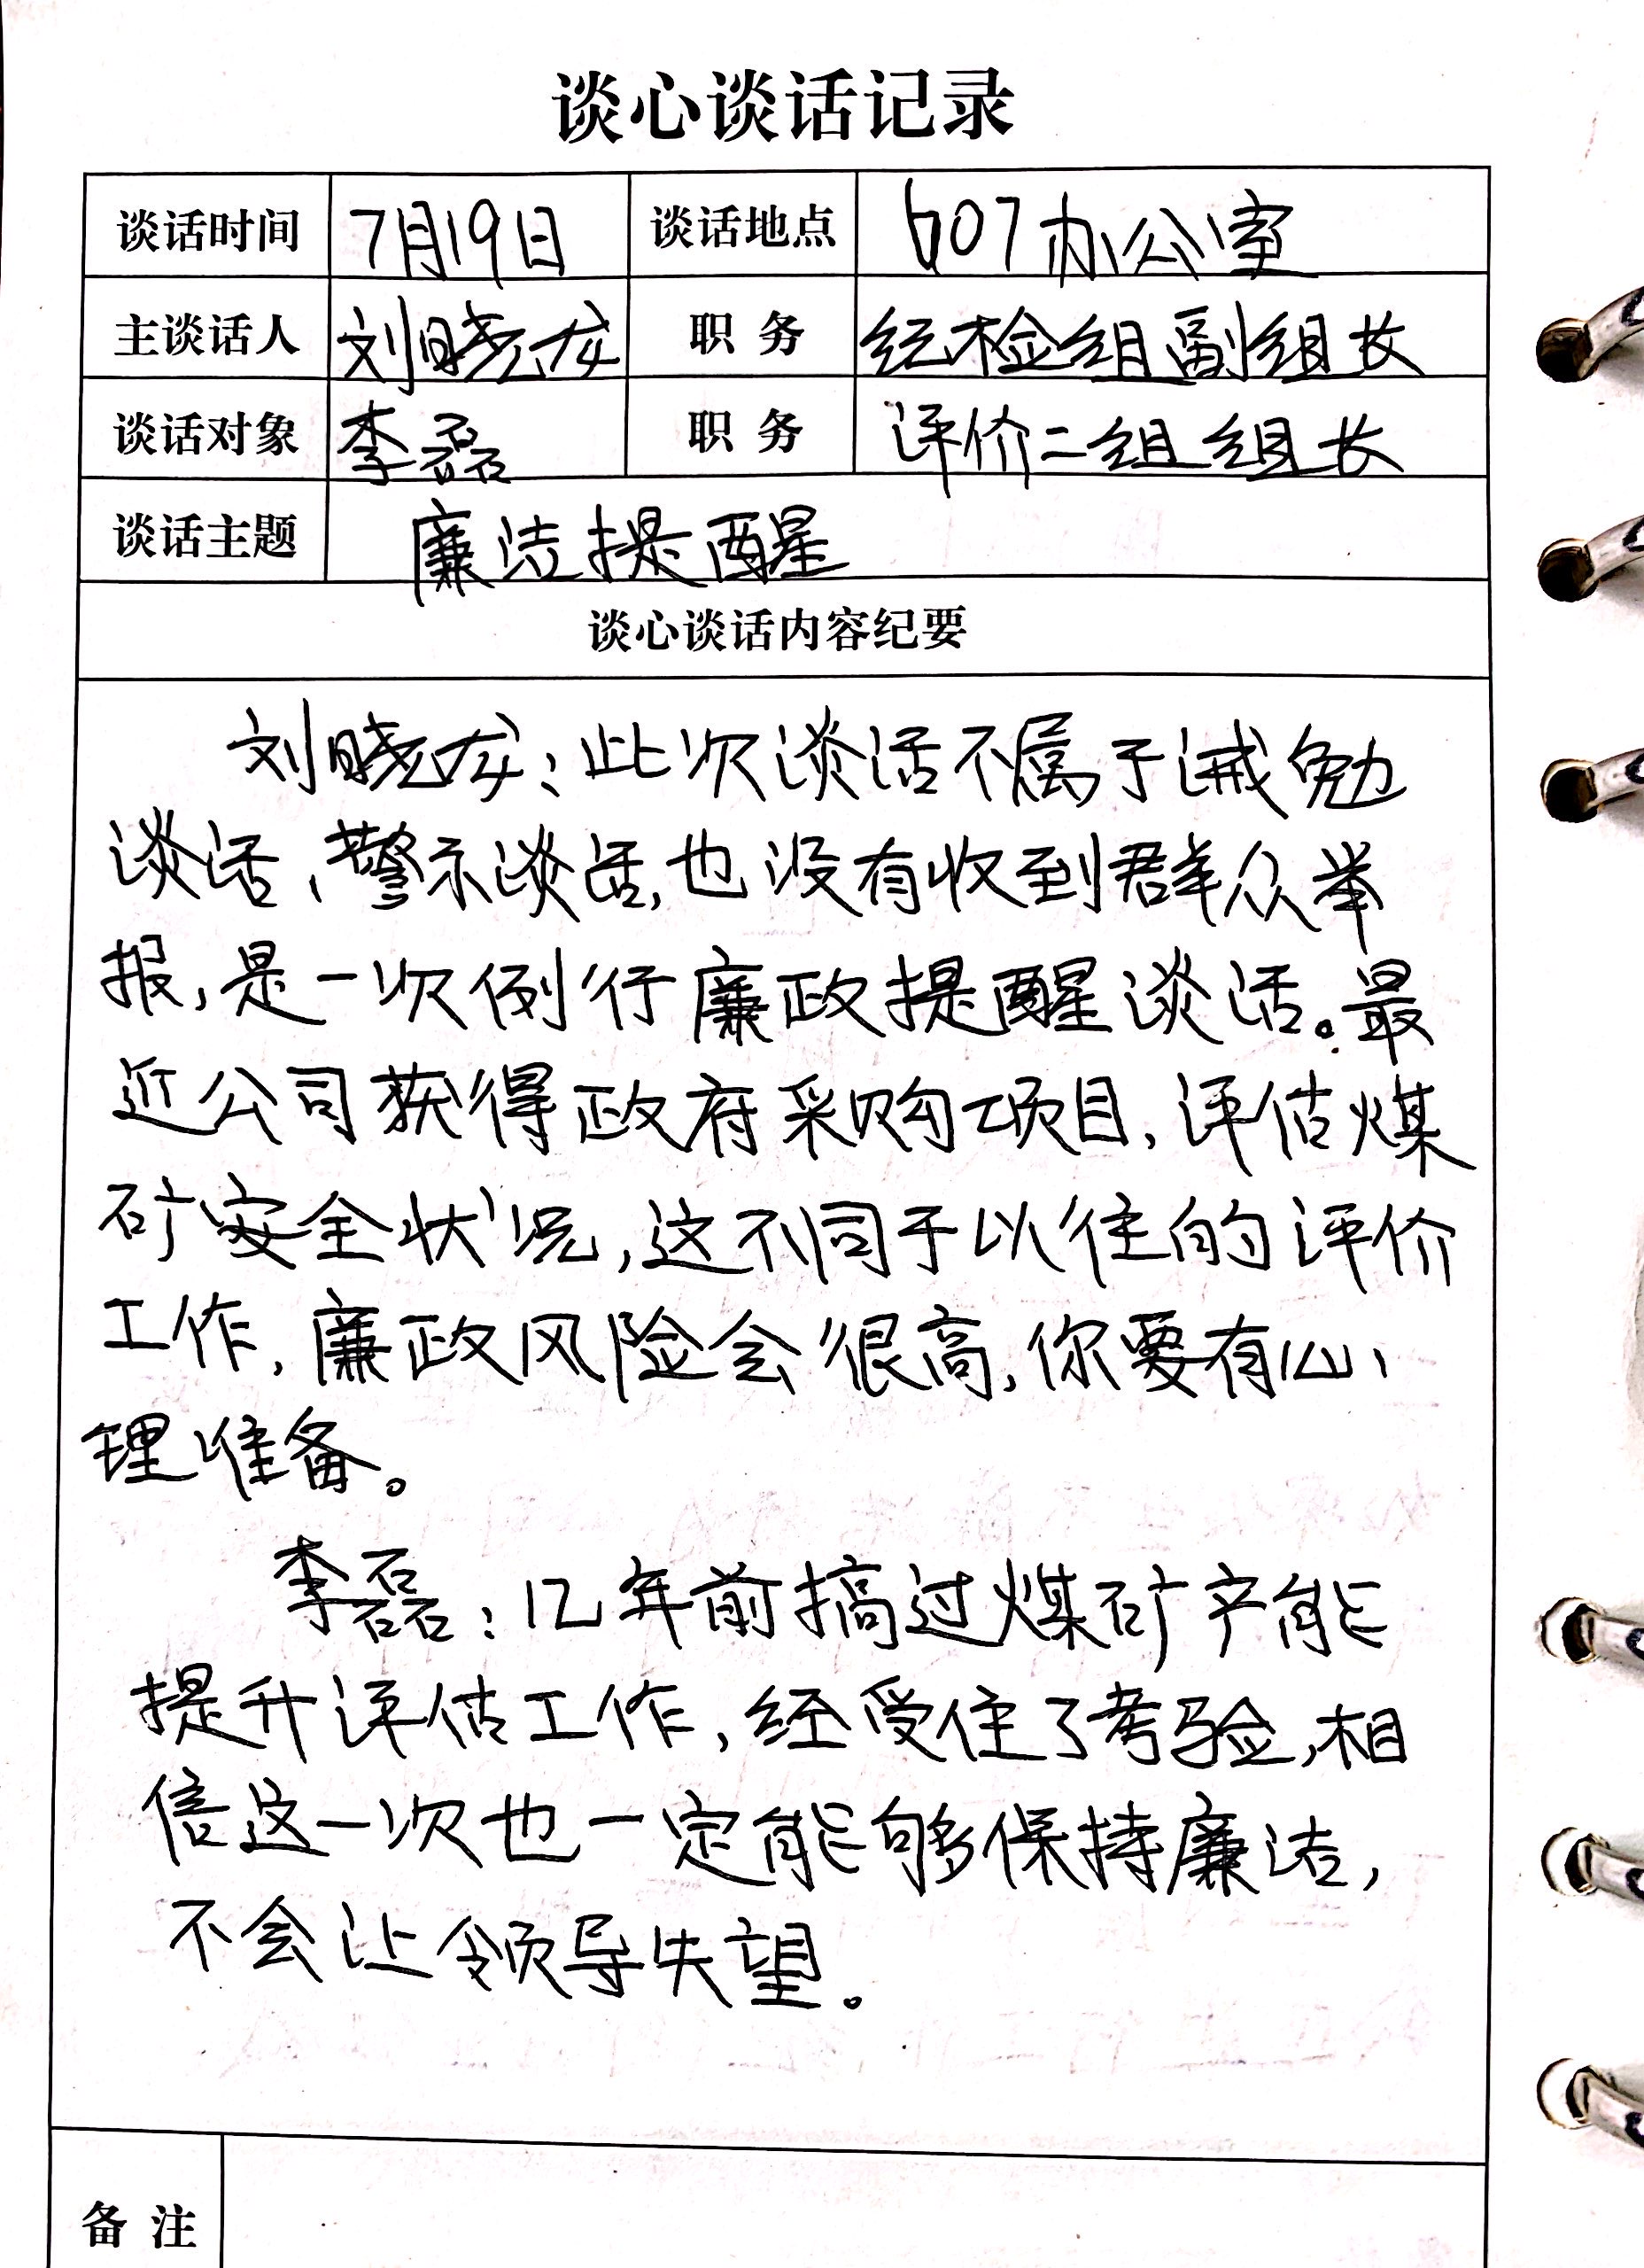 谈心谈话记录
谈话时间 7月19日 谈话地点 607办公室
主谈话人 刘晓龙 职务 纪检组副组长
谈话对象 李磊 职务 评价二组组长
谈话主题 廉洁提醒
谈心谈话内容纪要
刘晓龙：此次谈话不属于诫勉
谈话、警示谈话,也没有收到群众举
报,是一次例行廉政提醒谈话。最
近公司获得政府采购项目,评估煤
矿安全状况,这不同于以往的评价
工作,廉政风险会很高,你要有心
理准备。
李磊：几年前搞过煤矿产能
提升评估工作,经受住了考验,相
信这一次也一定能够保持廉洁,
不会让领导失望。
备注